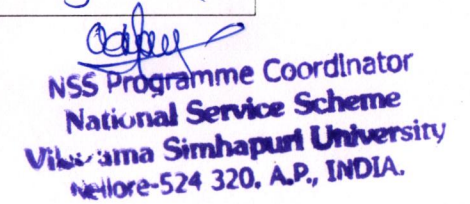 NSS Programme Coordinator
National Service Scheme
Simhapuri University
Nellore-524 320. A.P., INDIA.